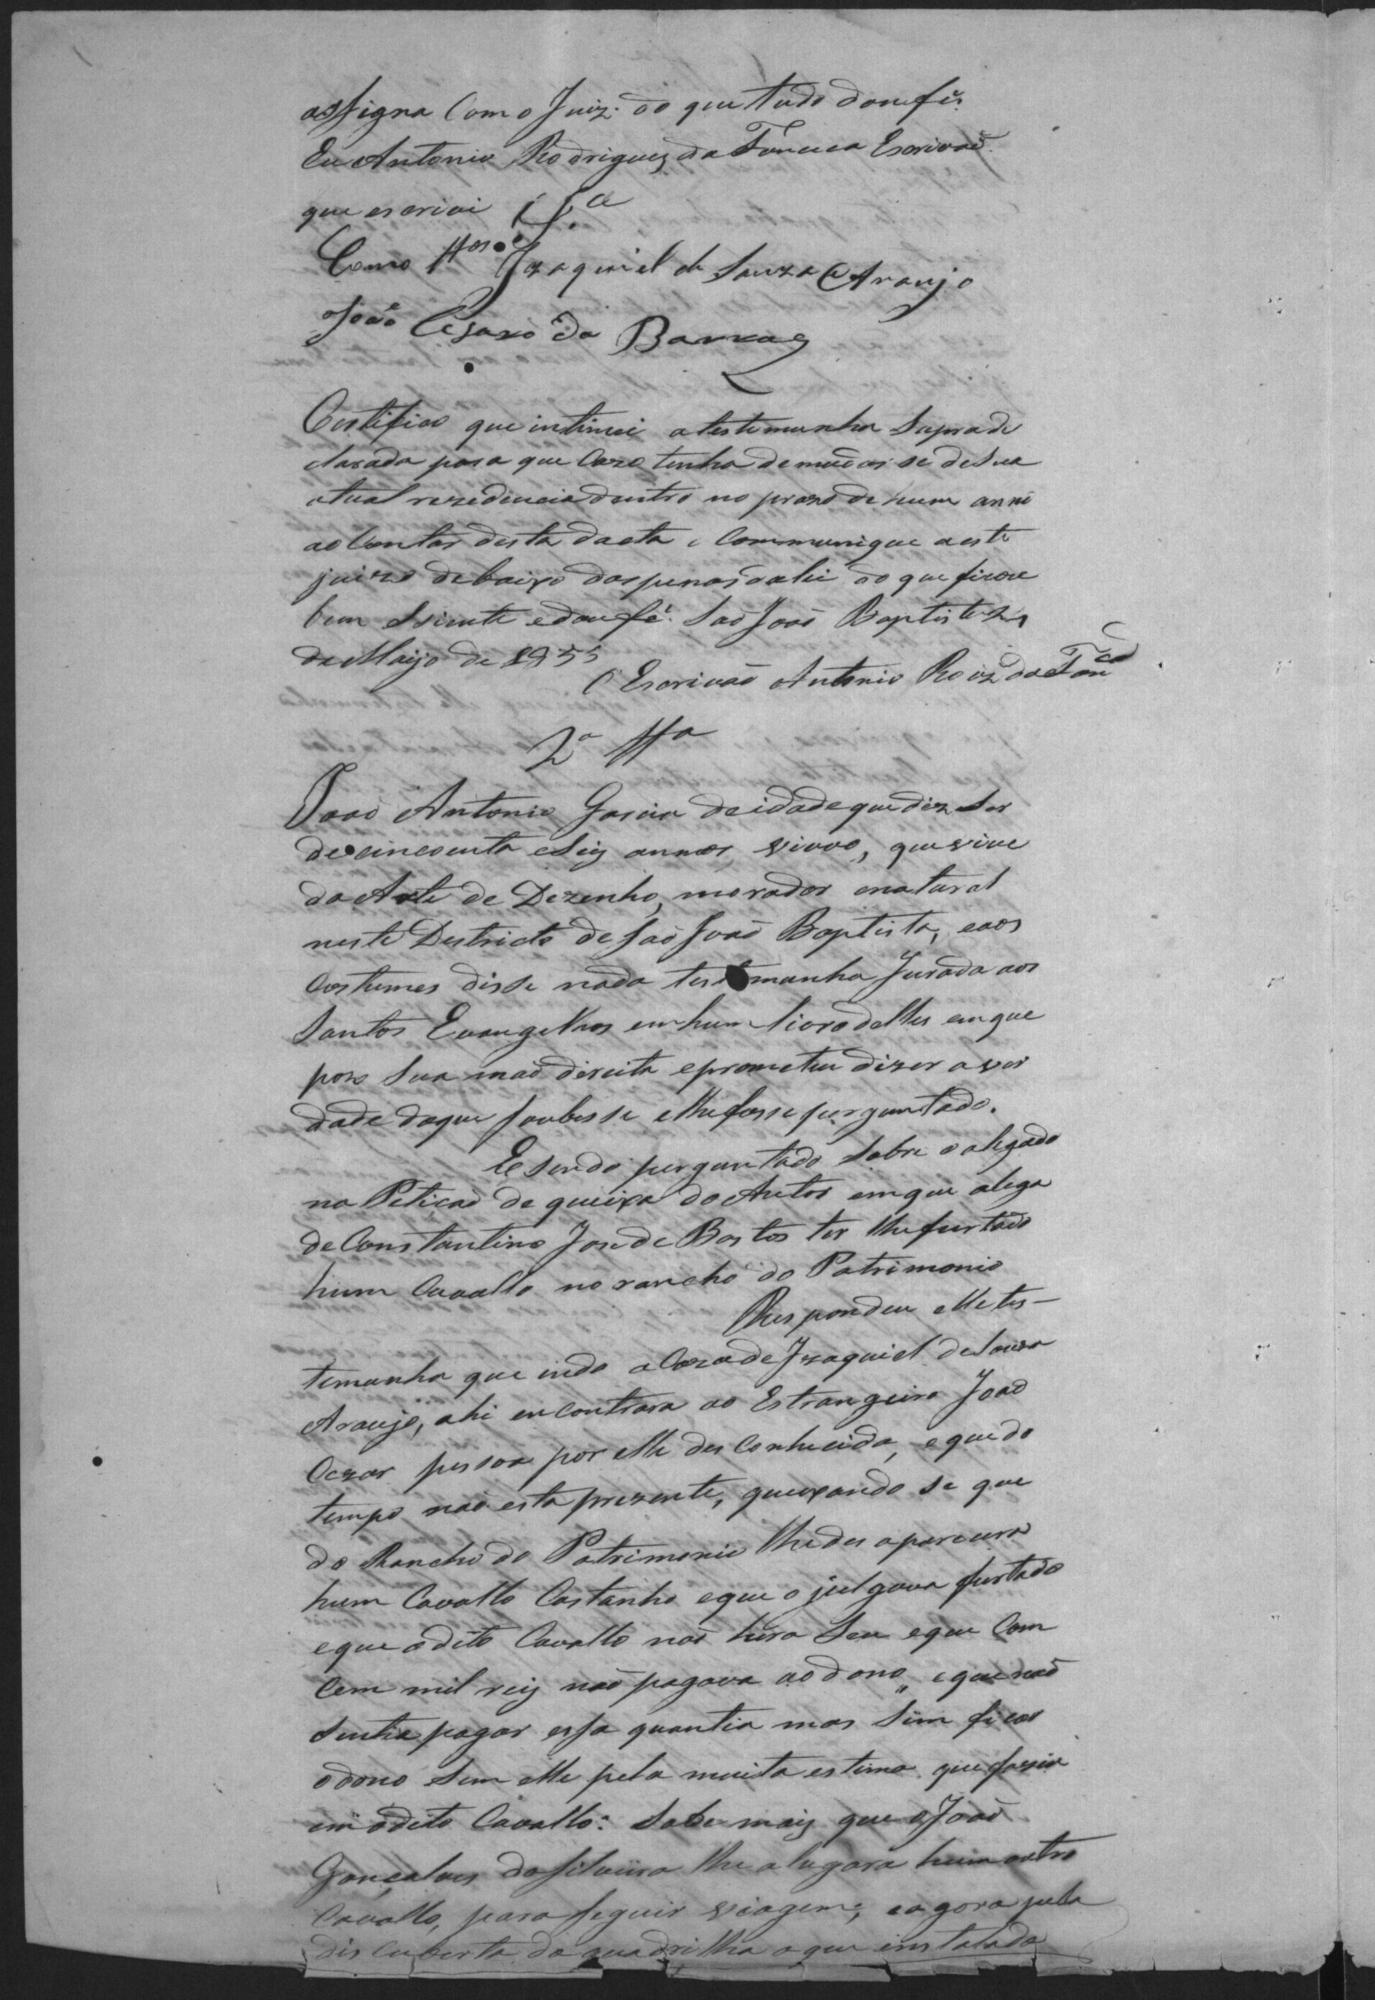 assigna com o Juiz. do que tudo dou fé.
Eu Antonio Rodrigues da Fonceca Escrivaõ
que escrivi
Como Ttas Izaquiel de Souza e Araujo
João Cesaro da
Certifico que intimei a testemunha supra de
clarada para que cazo tenha de mudar se de sua
atual rezedencia dentro no prazo de hum anno
ao contar desta dacta, communique a este
juizo debaixo das penas da lei do que ficou
bem sciente e dou fé. Saõ Joaõ Baptista 21
de Maijo de 1855
O Escrivaõ Antonio Roiz da Fonca
2a Tta
Joaõ Antonio Garcia de idade que diz ser
de cincoenta e seis annos, viuvo, que vive
da Arte de Dezenho, morador e natural
neste Destricto de Saõ Joaõ Baptista, e aos
costumes disse nada testemunha jurada aos
Santos Evangelhos em hum livro delles em que
pos sua maõ direita e prometeu dizer a ver
dade do que soubesse e lhe fosse perguntado.
E sendo perguntado sobre o alegado
na Peticaõ de queixa do Autor em que alega
de Constantino Jose de Bastos ter lhe furtado
hum cavallo no rancho do Patrimonio
Respondeu elle tes-
temunha que indo a caza de Izaquiel de Souza
Araujo, ahi encontrara ao Estrangeiro Joaõ
Cezar pessoa por elle desconhecida, e que do
tempo naõ esta prezente, queixando se que
do Rancho do Patrimonio lhe des aparecera
hum Cavallo Castanho e que o julgava furtado
e que o dito Cavallo naõ hera seu e que com
cem mil reis naõ pagava ao dono, e que naõ
sentia pagar essa quantia mas sim ficar
o dono sem elle pela muita estima que fazia
em o dito Cavallo: Sabe mais que o Joaõ
Gonçalves da Silveira lhe alugara hum outro
Cavallo, para seguir viagem; e agora pela
discuberta da quadrilha a que instalada